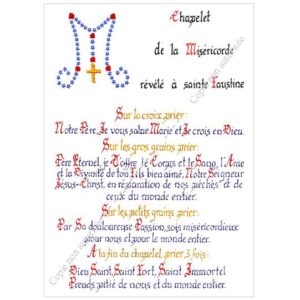 Chapelet
de la Miséricorde
révélé à sainte Faustine
Sur la croix prier:
Notre Père, Je vous salue Marie et Je crois en Dieu.
Sur les gros grains prier:
Père Eternel, je T'offre le Corps et le Sang, l'Ame
et la Divinité de ton Fils bien aimé, Notre Seigneur
Jésus-Christ, en réparation de nos péchés et de
ceux du monde entier.
Sur les petits grains prier:
Par Sa douloureuse Passion, sois miséricordieux
pour nous et pour le monde entier.
A la fin du chapelet, prier 3 fois:
Dieu Saint, Saint Fort, Saint Immortel
Prends pitié de nous et du monde entier.